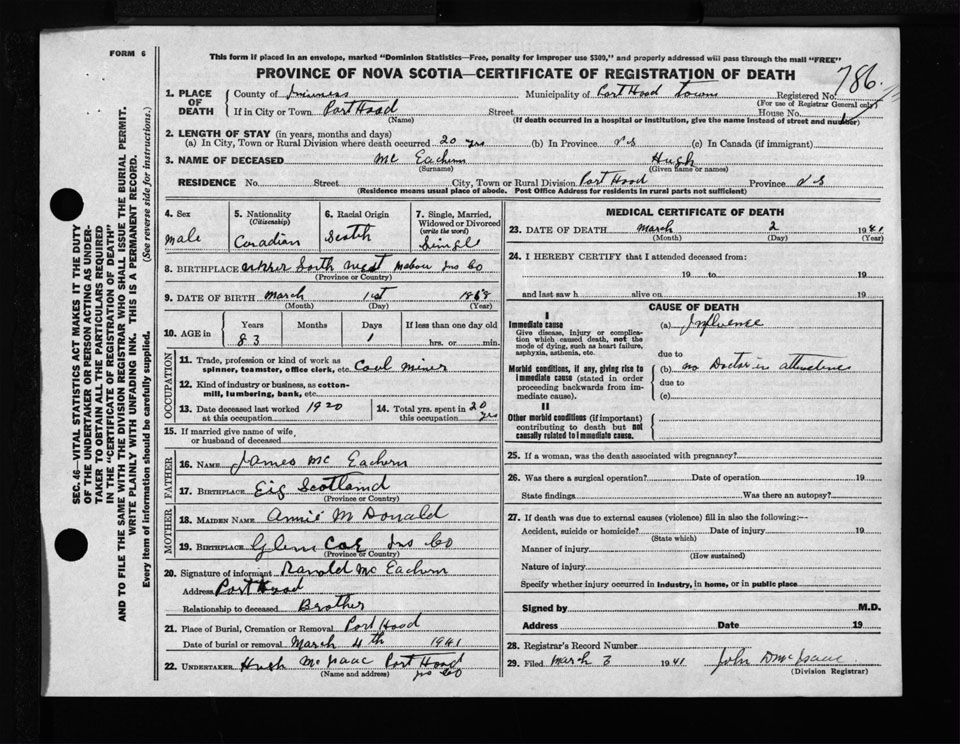 FORM 6
This form if placed in an envelope, marked "Dominion Statistics—Free, penalty for improper use $300," and properly addressed will pass through the mail "FREE"
PROVINCE OF NOVA SCOTIA—CERTIFICATE OF REGISTRATION OF DEATH
786
SEC. 46—VITAL STATISTICS ACT MAKES IT THE DUTY
OF THE UNDERTAKER OR PERSON ACTING AS UNDER-
TAKER TO OBTAIN ALL THE PARTICULARS REQUIRED
IN THE "CERTIFICATE OF REGISTRATION OF DEATH"
AND TO FILE THE SAME WITH THE DIVISION REGISTRAR WHO SHALL ISSUE THE BURIAL PERMIT.
WRITE PLAINLY WITH UNFADING INK. THIS IS A PERMANENT RECORD.
Every item of information should be carefully supplied. (See reverse side for instructions.)
1. PLACE OF DEATH
County of Inverness Municipality of Port Hood Town Registered No.
(For use of Registrar General only)
If in City or Town Port Hood Street House No.
(Name) (If death occurred in a hospital or institution, give the name instead of street and number)
2. LENGTH OF STAY (in years, months and days)
(a) In City, Town or Rural Division where death occurred 20 yrs (b) In Province N S (c) In Canada (if immigrant)
3. NAME OF DECEASED Mc Eachern Hugh
(Surname) (Given name or names)
RESIDENCE No. Street City, Town or Rural Division Port Hood Province N S
(Residence means usual place of abode. Post Office Address for residents in rural parts not sufficient)
4. Sex
Male
5. Nationality
(Citizenship)
Canadian
6. Racial Origin
Scotch
7. Single, Married,
Widowed or Divorced
(write the word)
Single
8. BIRTHPLACE South West Mabou Inv Co
(Province or Country)
9. DATE OF BIRTH March 1st 1858
(Month) (Day) (Year)
10. AGE in Years Months Days If less than one day old
83 1 hrs. or min.
OCCUPATION
11. Trade, profession or kind of work as
spinner, teamster, office clerk, etc. Coal Miner
12. Kind of industry or business, as cotton-
mill, lumbering, bank, etc.
13. Date deceased last worked 1920
at this occupation
14. Total yrs. spent in 20 yrs
this occupation
15. If married give name of wife
or husband of deceased
FATHER
16. NAME James Mc Eachern
17. BIRTHPLACE Eig Scotland
(Province or Country)
MOTHER
18. MAIDEN NAME Annie M Donald
19. BIRTHPLACE Glen Coe Inv Co
(Province or Country)
20. Signature of informant Ranold Mc Eachern
Address Port Hood
Relationship to deceased Brother
21. Place of Burial, Cremation or Removal Port Hood
Date of burial or removal March 4th 1941
22. UNDERTAKER Hugh Mc Isaac Port Hood
(Name and address) Inv Co
MEDICAL CERTIFICATE OF DEATH
23. DATE OF DEATH March 2 1941
(Month) (Day) (Year)
24. I HEREBY CERTIFY that I attended deceased from:
19 to 19
and last saw h alive on 19
CAUSE OF DEATH
I
Immediate cause
Give disease, injury or complica-
tion which caused death, not the
mode of dying, such as heart failure,
asphyxia, asthenia, etc.
(a) Influense
due to
Morbid conditions, if any, giving rise to
immediate cause (stated in order
proceeding backwards from im-
mediate cause).
(b) no Doctor in attendence
due to
(c)
II
Other morbid conditions (if important)
contributing to death but not
causally related to immediate cause.
25. If a woman, was the death associated with pregnancy?
26. Was there a surgical operation? Date of operation 19
State findings Was there an autopsy?
27. If death was due to external causes (violence) fill in also the following:—
Accident, suicide or homicide? Date of injury 19
(State which)
Manner of injury
(How sustained)
Nature of injury
Specify whether injury occurred in industry, in home, or in public place
Signed by M.D.
Address Date 19
28. Registrar's Record Number
29. Filed March 3 1941 John D McIsaac
(Division Registrar)